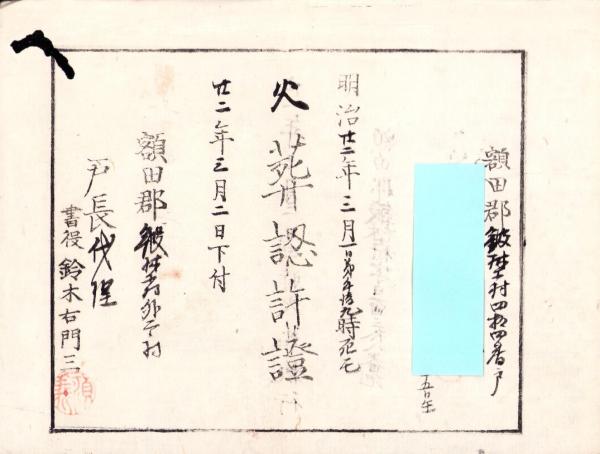 額田郡鉢地村四拾四番戸
五日生
明治廿二年三月一日午后九時死亡
火葬認許證
廿二年三月二日下付
額田郡鉢地村外
戸長代理
書役鈴木右門三